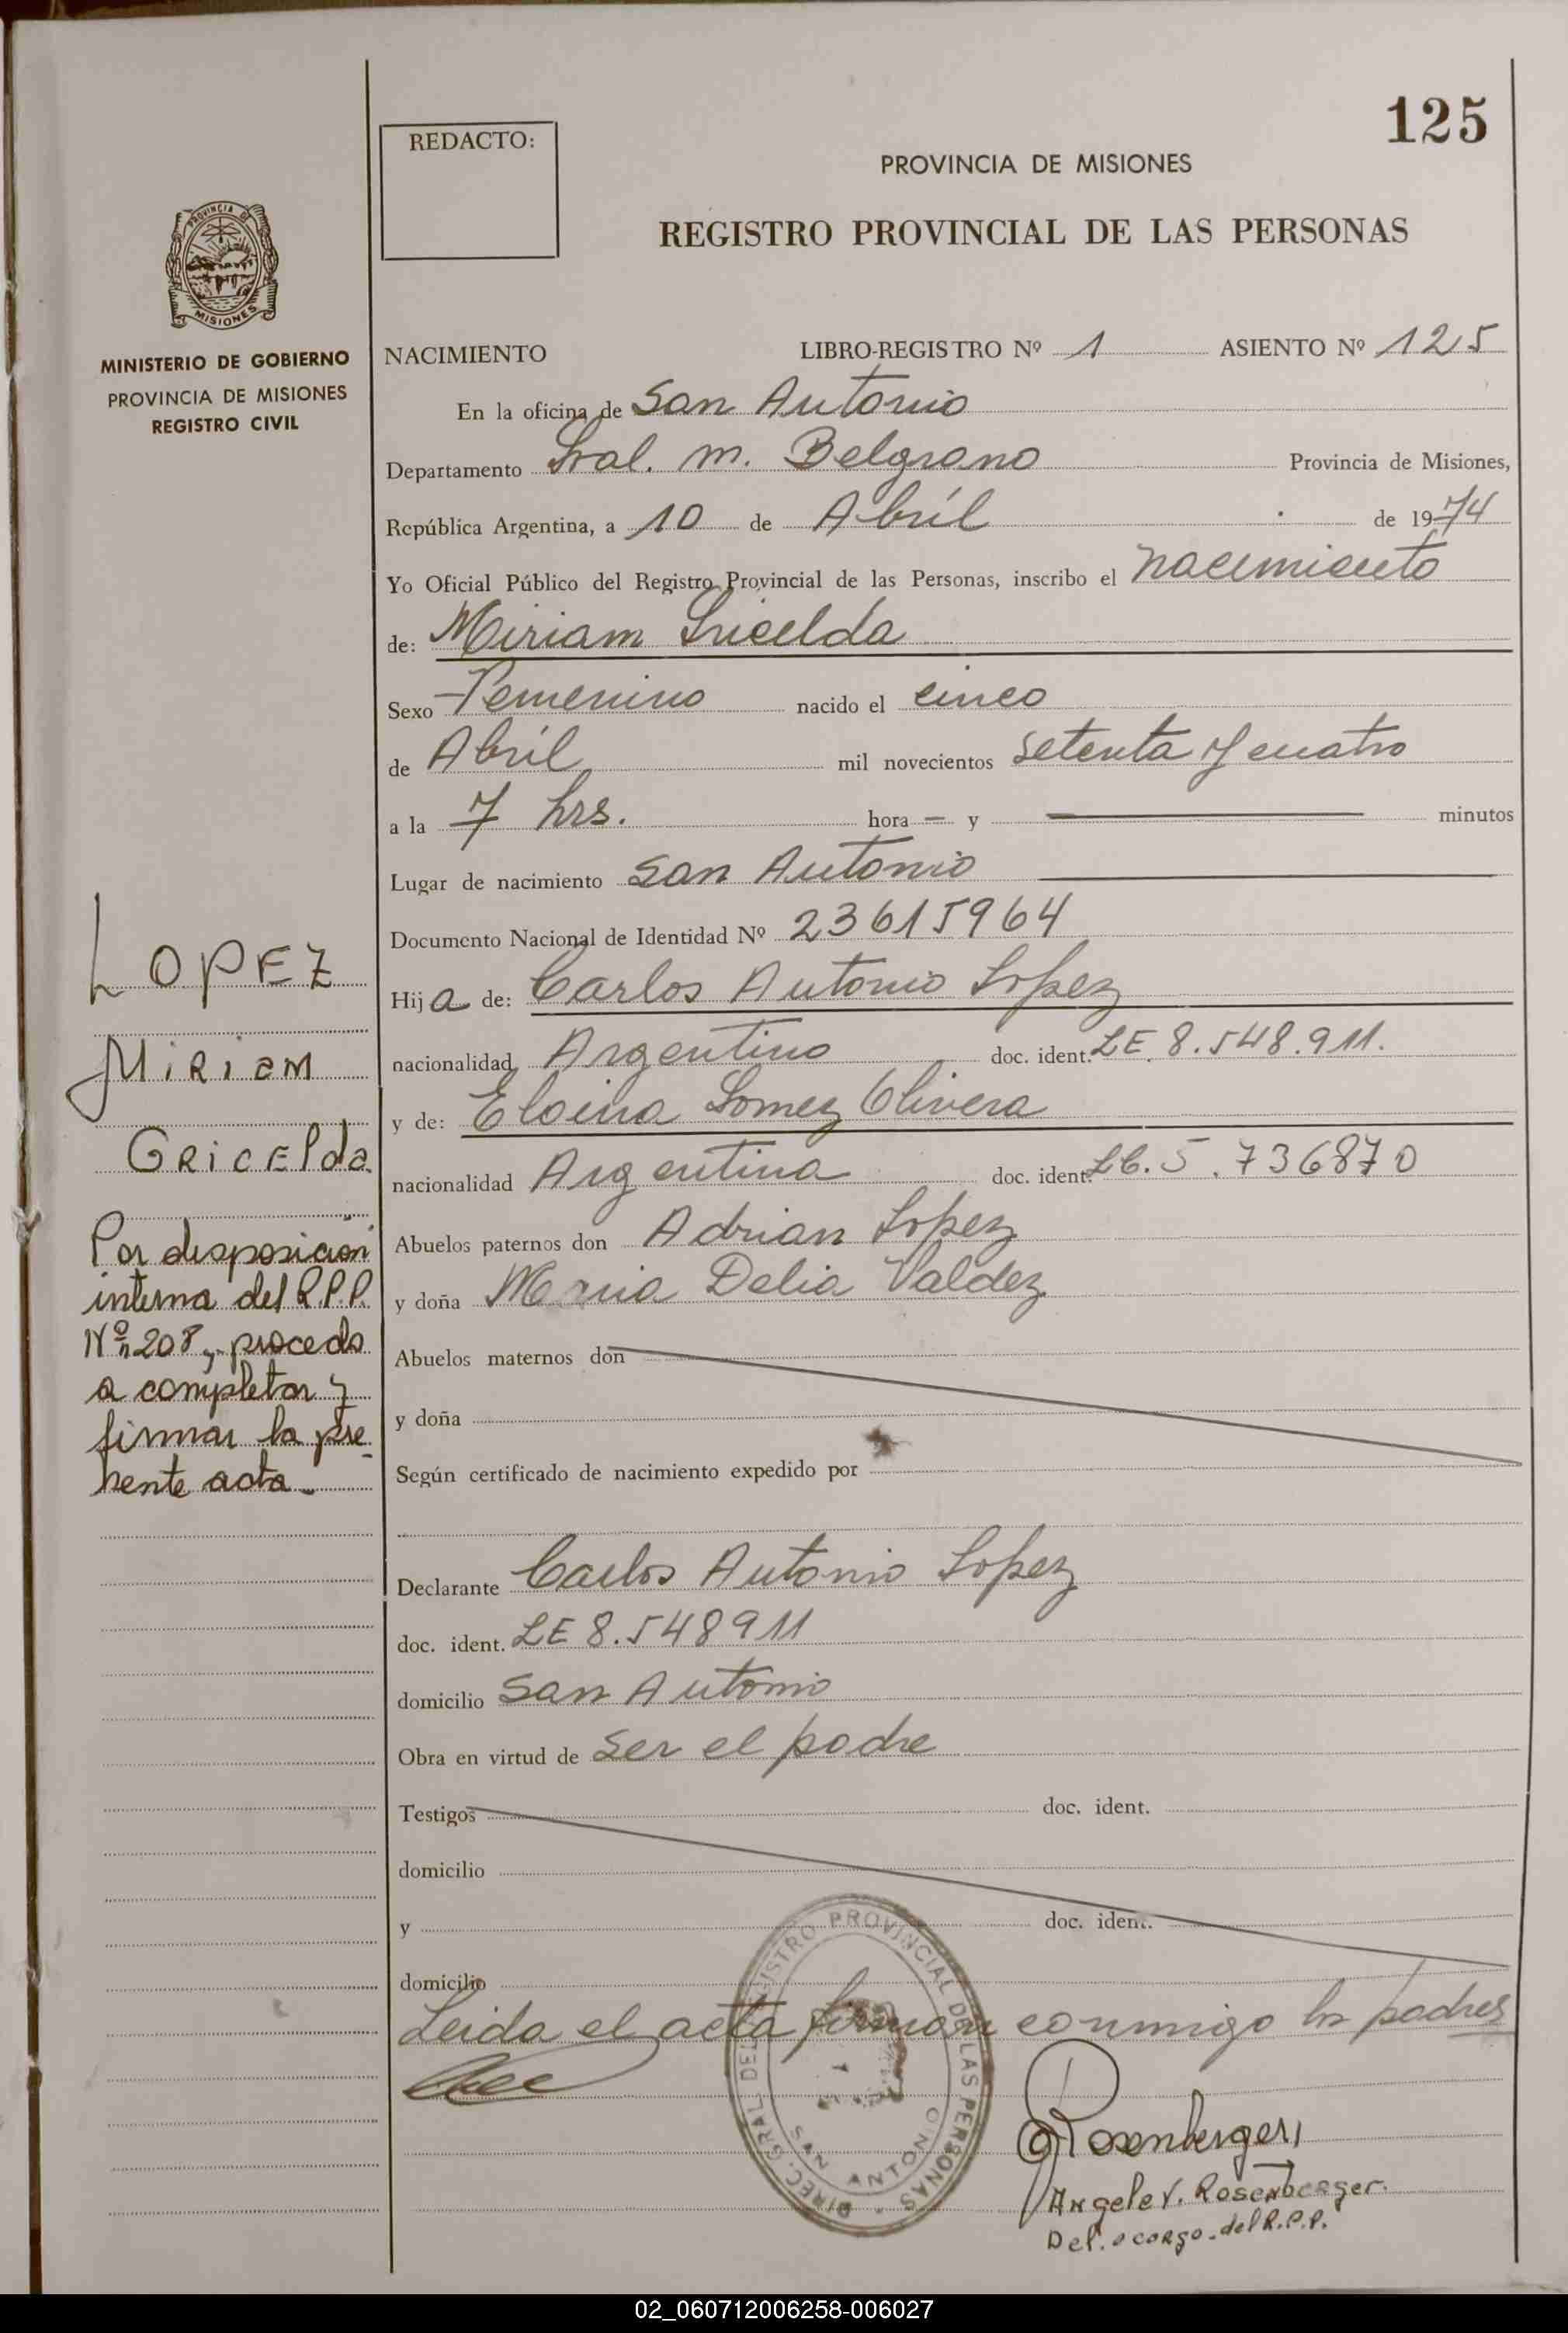 125
REDACTO:
PROVINCIA DE MISIONES
REGISTRO PROVINCIAL DE LAS PERSONAS
PROVINCIA DE
MISIONES
MINISTERIO DE GOBIERNO
PROVINCIA DE MISIONES
REGISTRO CIVIL
NACIMIENTO LIBRO-REGISTRO Nº 1 ASIENTO Nº 125
En la oficina de San Antonio
Departamento Gral. M. Belgrano Provincia de Misiones,
República Argentina, a 10 de Abríl de 1974
Yo Oficial Público del Registro Provincial de las Personas, inscribo el nacimiento
de: Miriam Gricelda
Sexo Femenino nacido el cinco
de Abríl mil novecientos setenta y cuatro
a la 7 hrs. hora — y minutos
Lugar de nacimiento San Antonio
Documento Nacional de Identidad Nº 23615964
Hija de: Carlos Antonio Lopez
nacionalidad Argentino doc. ident. LE. 8.548.911.
y de: Eloina Gomez Olivera
nacionalidad Argentina doc. ident. LC. 5.736870
Abuelos paternos don Adrian Lopez
y doña Maria Delia Valdez
Abuelos maternos don
y doña
Según certificado de nacimiento expedido por
Declarante Carlos Antonio Lopez
doc. ident. LE 8.548911
domicilio San Antonio
Obra en virtud de ser el padre
Testigos doc. ident.
domicilio
y doc. ident.
domicilio
Leida el acta firman conmigo los padres
LOPEZ
MIRIAM
GRICELda
Por disposición
interna del R.P.P.
Nº 208, procedo
a completar y
firmar la pre
sente acta
DIREC. GRAL. DEL REGISTRO PROVINCIAL DE LAS PERSONAS
SAN ANTONIO
Rosenberger
Angele V. Rosenberger.
Del. a cargo. del R.P.P.
02_060712006258-006027